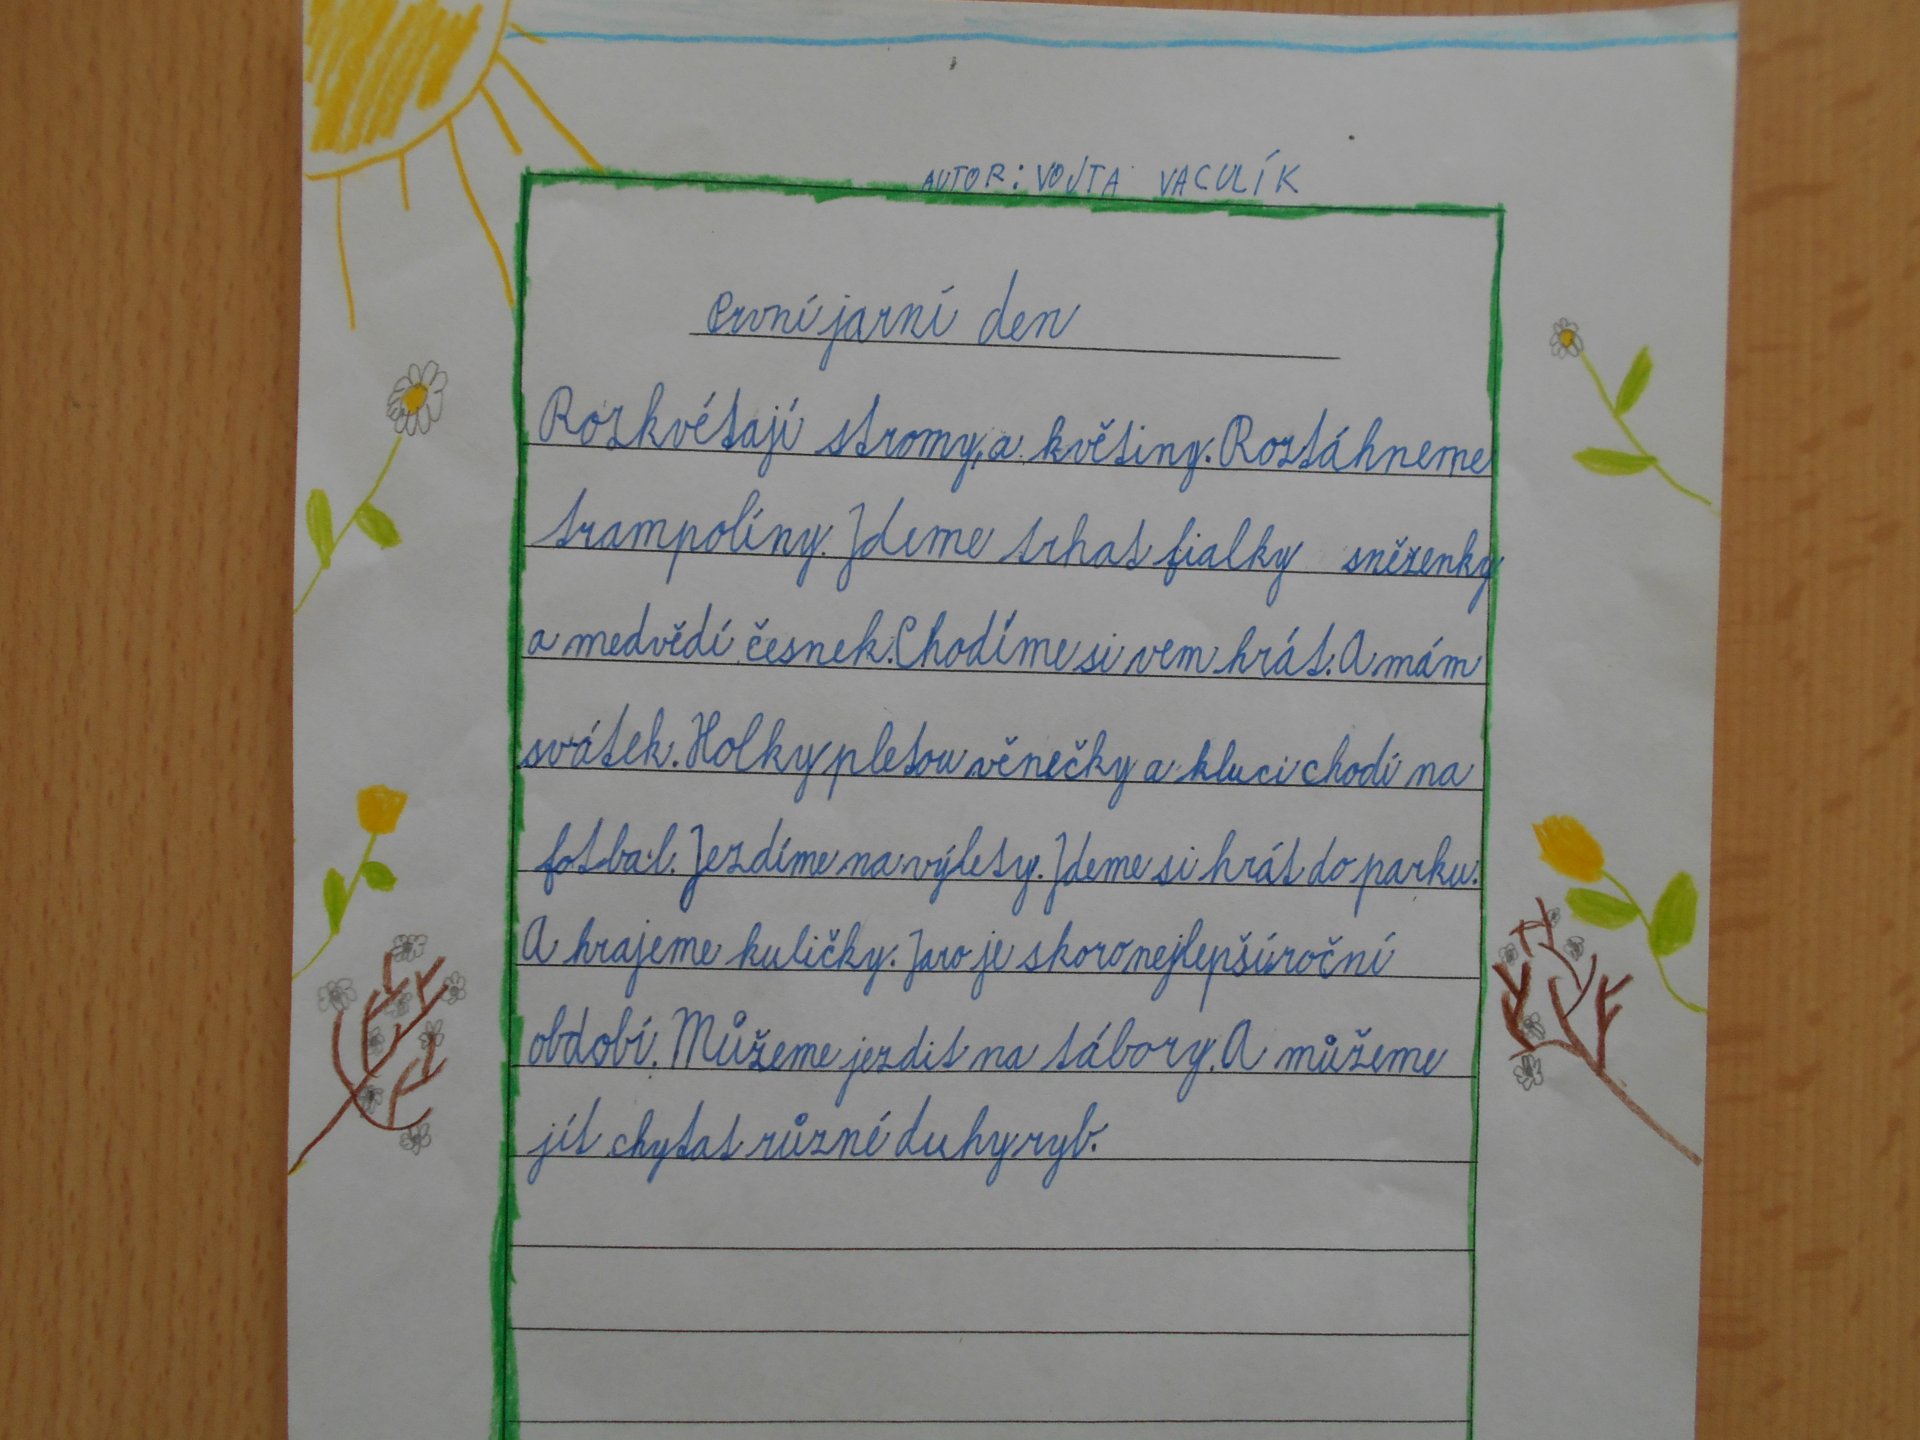 AUTOR: VOJTA VACULÍK
První jarní den
Rozkvétají stromy, a květiny. Roztáhneme
trampolíny. Jdeme trhat fialky sněženky
a medvědí česnek. Chodíme si vem hrát. A mám
svátek. Holky pletou věnečky a kluci chodí na
fotbal. Jezdíme na výlety. Jdeme si hrát do parku.
A hrajeme kuličky. Jaro je skoro nejlepší roční
období. Můžeme jezdit na tábory. A můžeme
jít chytat různé duhy ryb.